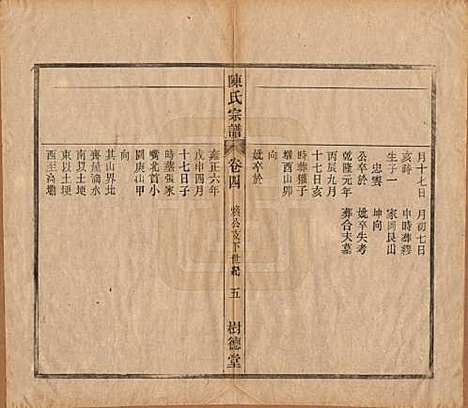 月十七日　月初七日
亥時　申時葬繆
生子一　家岡艮山
忠雲　坤向
公卒於　妣卒失考
乾隆元年　葬合夫墓
丙辰九月
十七日亥
時葬獾子
壋酉山卯
向
妣卒於
陳氏宗譜　卷四　公支下世紀　五　樹德堂
雍正六年
戊申四月
十七日子
時葬張家
嘴北首小
圓庚山甲
向
其山界北
齊屋滴水
南以土埂
東以土埂
西至為壋